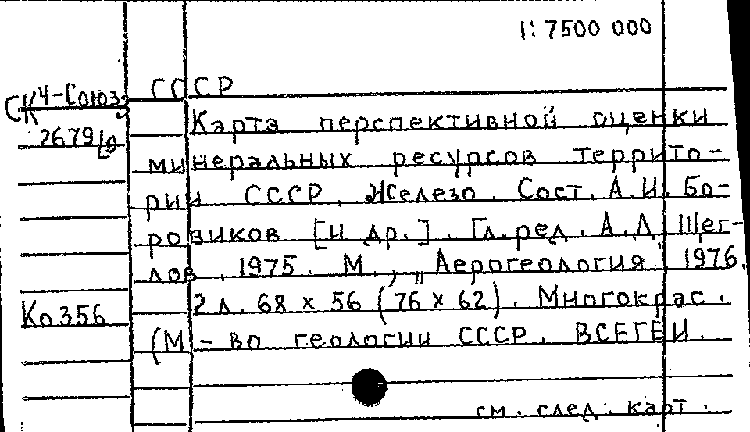 1:7500 000
СССР
СК4-Союз
Карта перспективной оценки
минеральных ресурсов террито-
рии СССР. Железо. Сост. А.И. Бо-
ровиков [и др.]. Гл. ред. А.Л. Щег-
лов, 1975. М., „Аерогеология", 1976.
Ко356
2 л. 68 х 56 (76 х 62). Многокрас.
(М-во геологии СССР. ВСЕГЕИ.
см. след. карт.